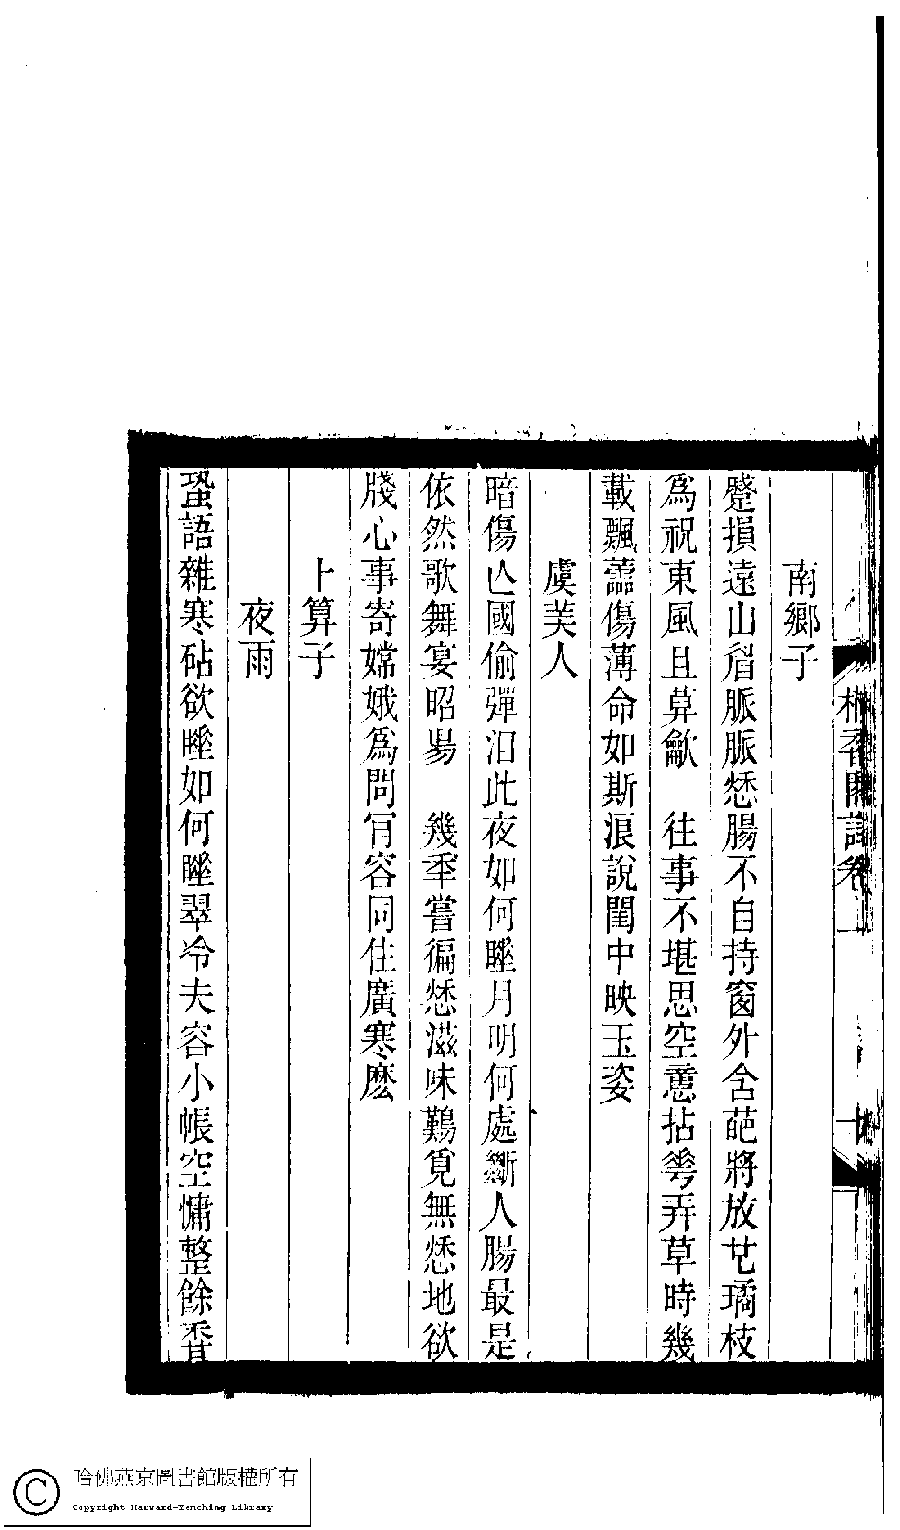 南鄉子
蹙損遠山眉脈脈愁腸不自持窗外含葩將放也璚枝
爲祝東風且莫歈　往事不堪思空憶拈花弄草時幾
載飄蘦傷薄命如斯浪說閨中映玉姿
虞美人
暗傷亾國偷彈泪此夜如何睡月明何處斷人腸最是
依然歌舞宴昭陽　幾年嘗徧愁滋味難覓無愁地欲
牋心事寄嫦娥爲問肎容同住廣寒麽
卜算子
夜雨
蛩語雜寒砧欲睡如何睡翠冷夫容小帳空慵整餘香
香閣詞卷一
十
哈佛燕京圖書館版權所有
Copyright Harvard-Yenching Library